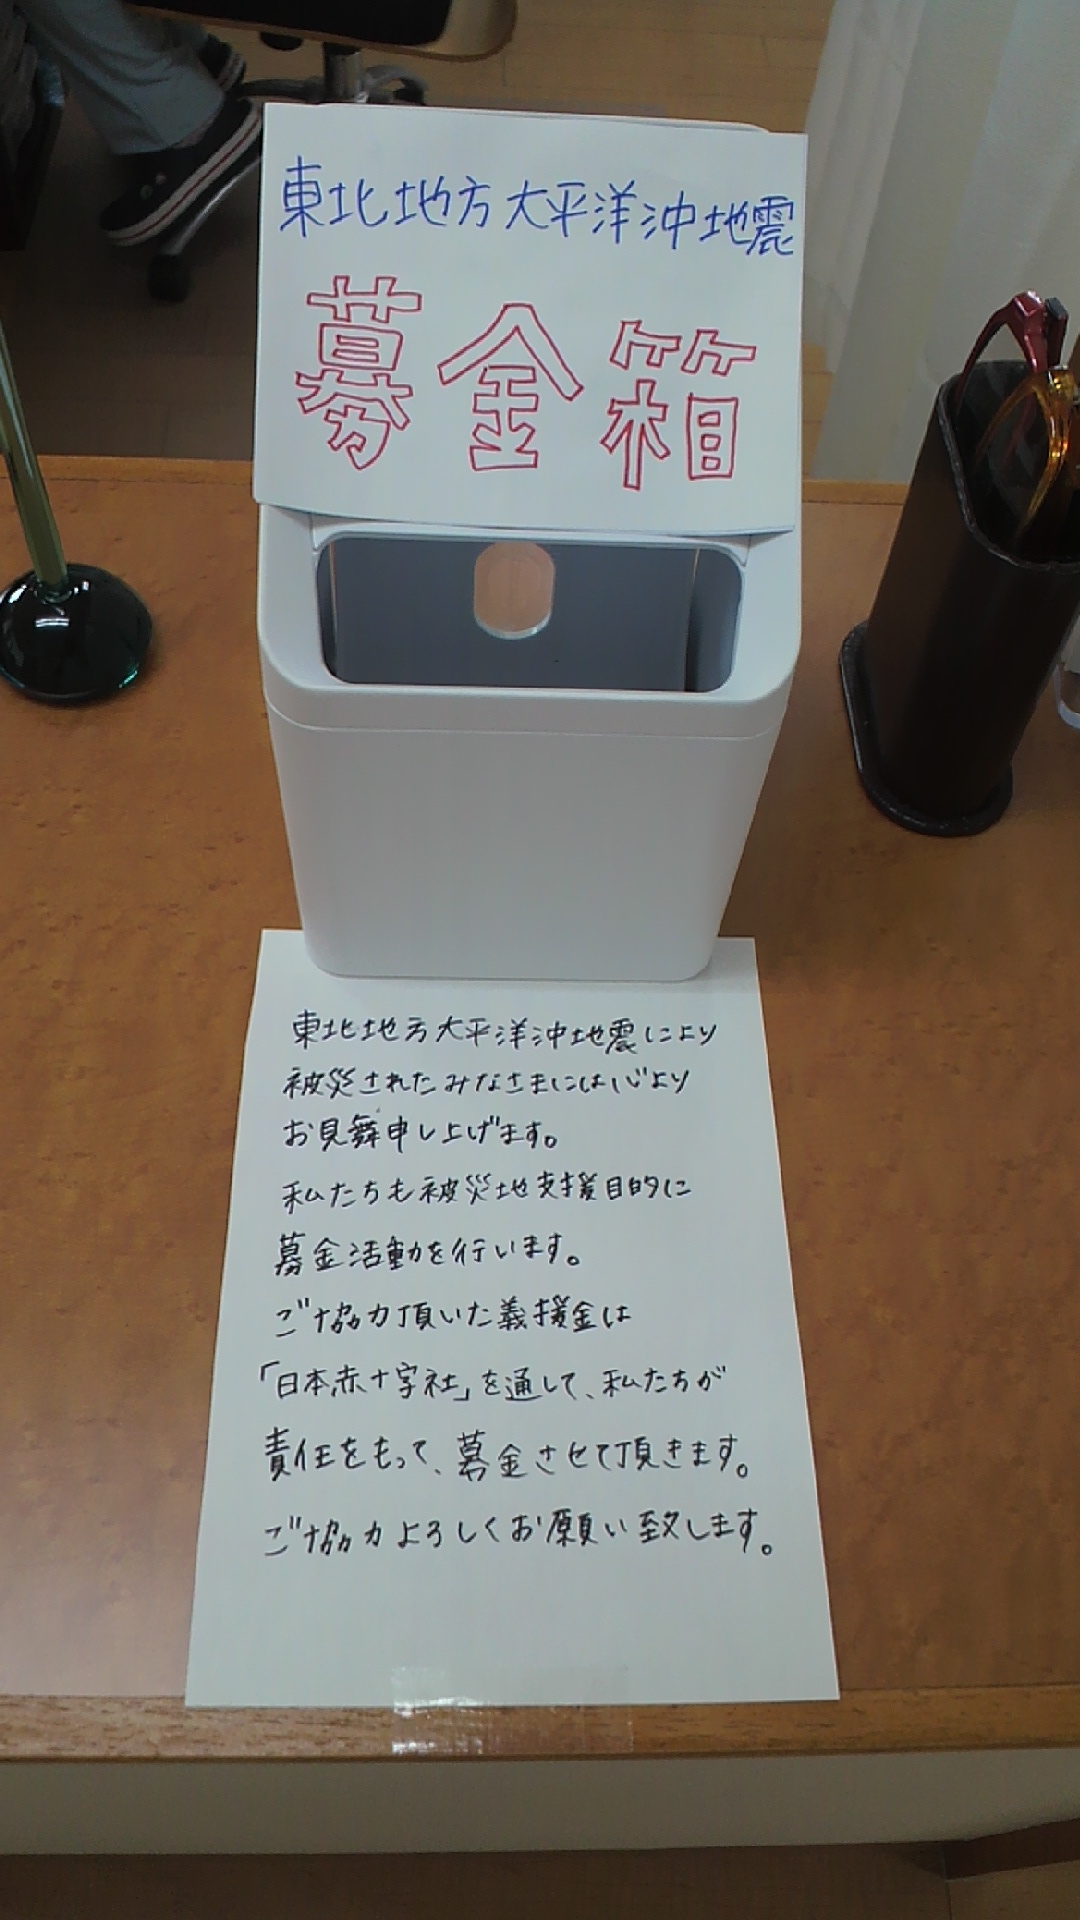 東北地方太平洋沖地震
募金箱
東北地方太平洋沖地震により
被災されたみなさまには心より
お見舞申し上げます。
私たちも被災地支援目的に
募金活動を行います。
ご協力頂いた義援金は
「日本赤十字社」を通して、私たちが
責任をもって、募金させて頂きます。
ご協力よろしくお願い致します。